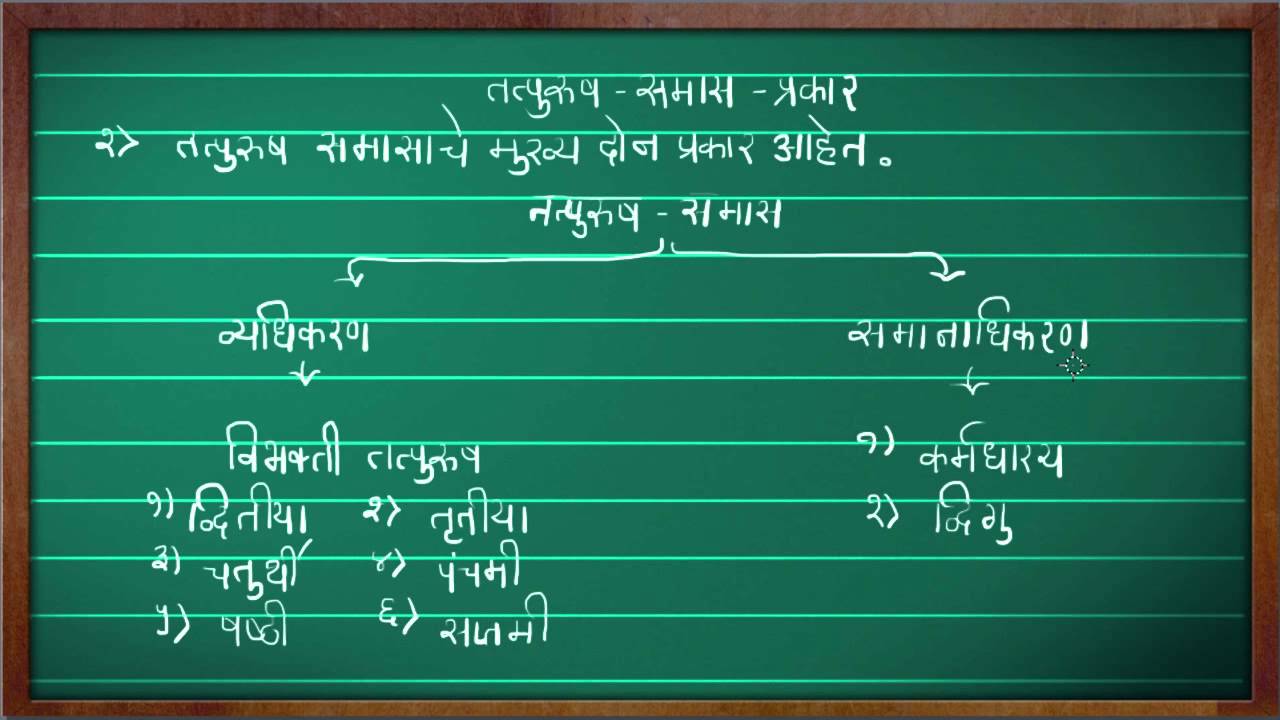 तत्पुरुष - समास - प्रकार
२> तत्पुरुष समासाचे मुख्य दोन प्रकार आहेत.
तत्पुरुष - समास
व्यधिकरण समानाधिकरण
विभक्ती तत्पुरुष १) कर्मधारय
१) द्वितीया २> तृतीया २> द्विगु
३) चतुर्थी ४> पंचमी
५> षष्ठी ६> सप्तमी